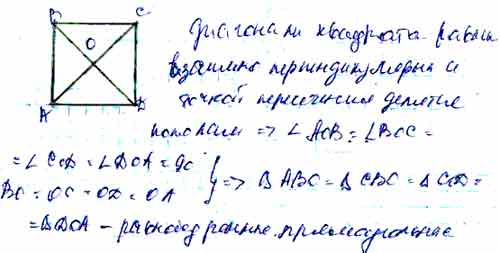 B C
O
A D
диагонали квадрата равны
взаимно перпендикулярны и
точкой пересечения делятся
пополам => ∠AOB = ∠BOC =
= ∠COD = ∠DOA = 90
BO = OC = OD = OA } => Δ ABO = Δ CBO = Δ COD =
= Δ DOA - равнобедренные прямоугольные